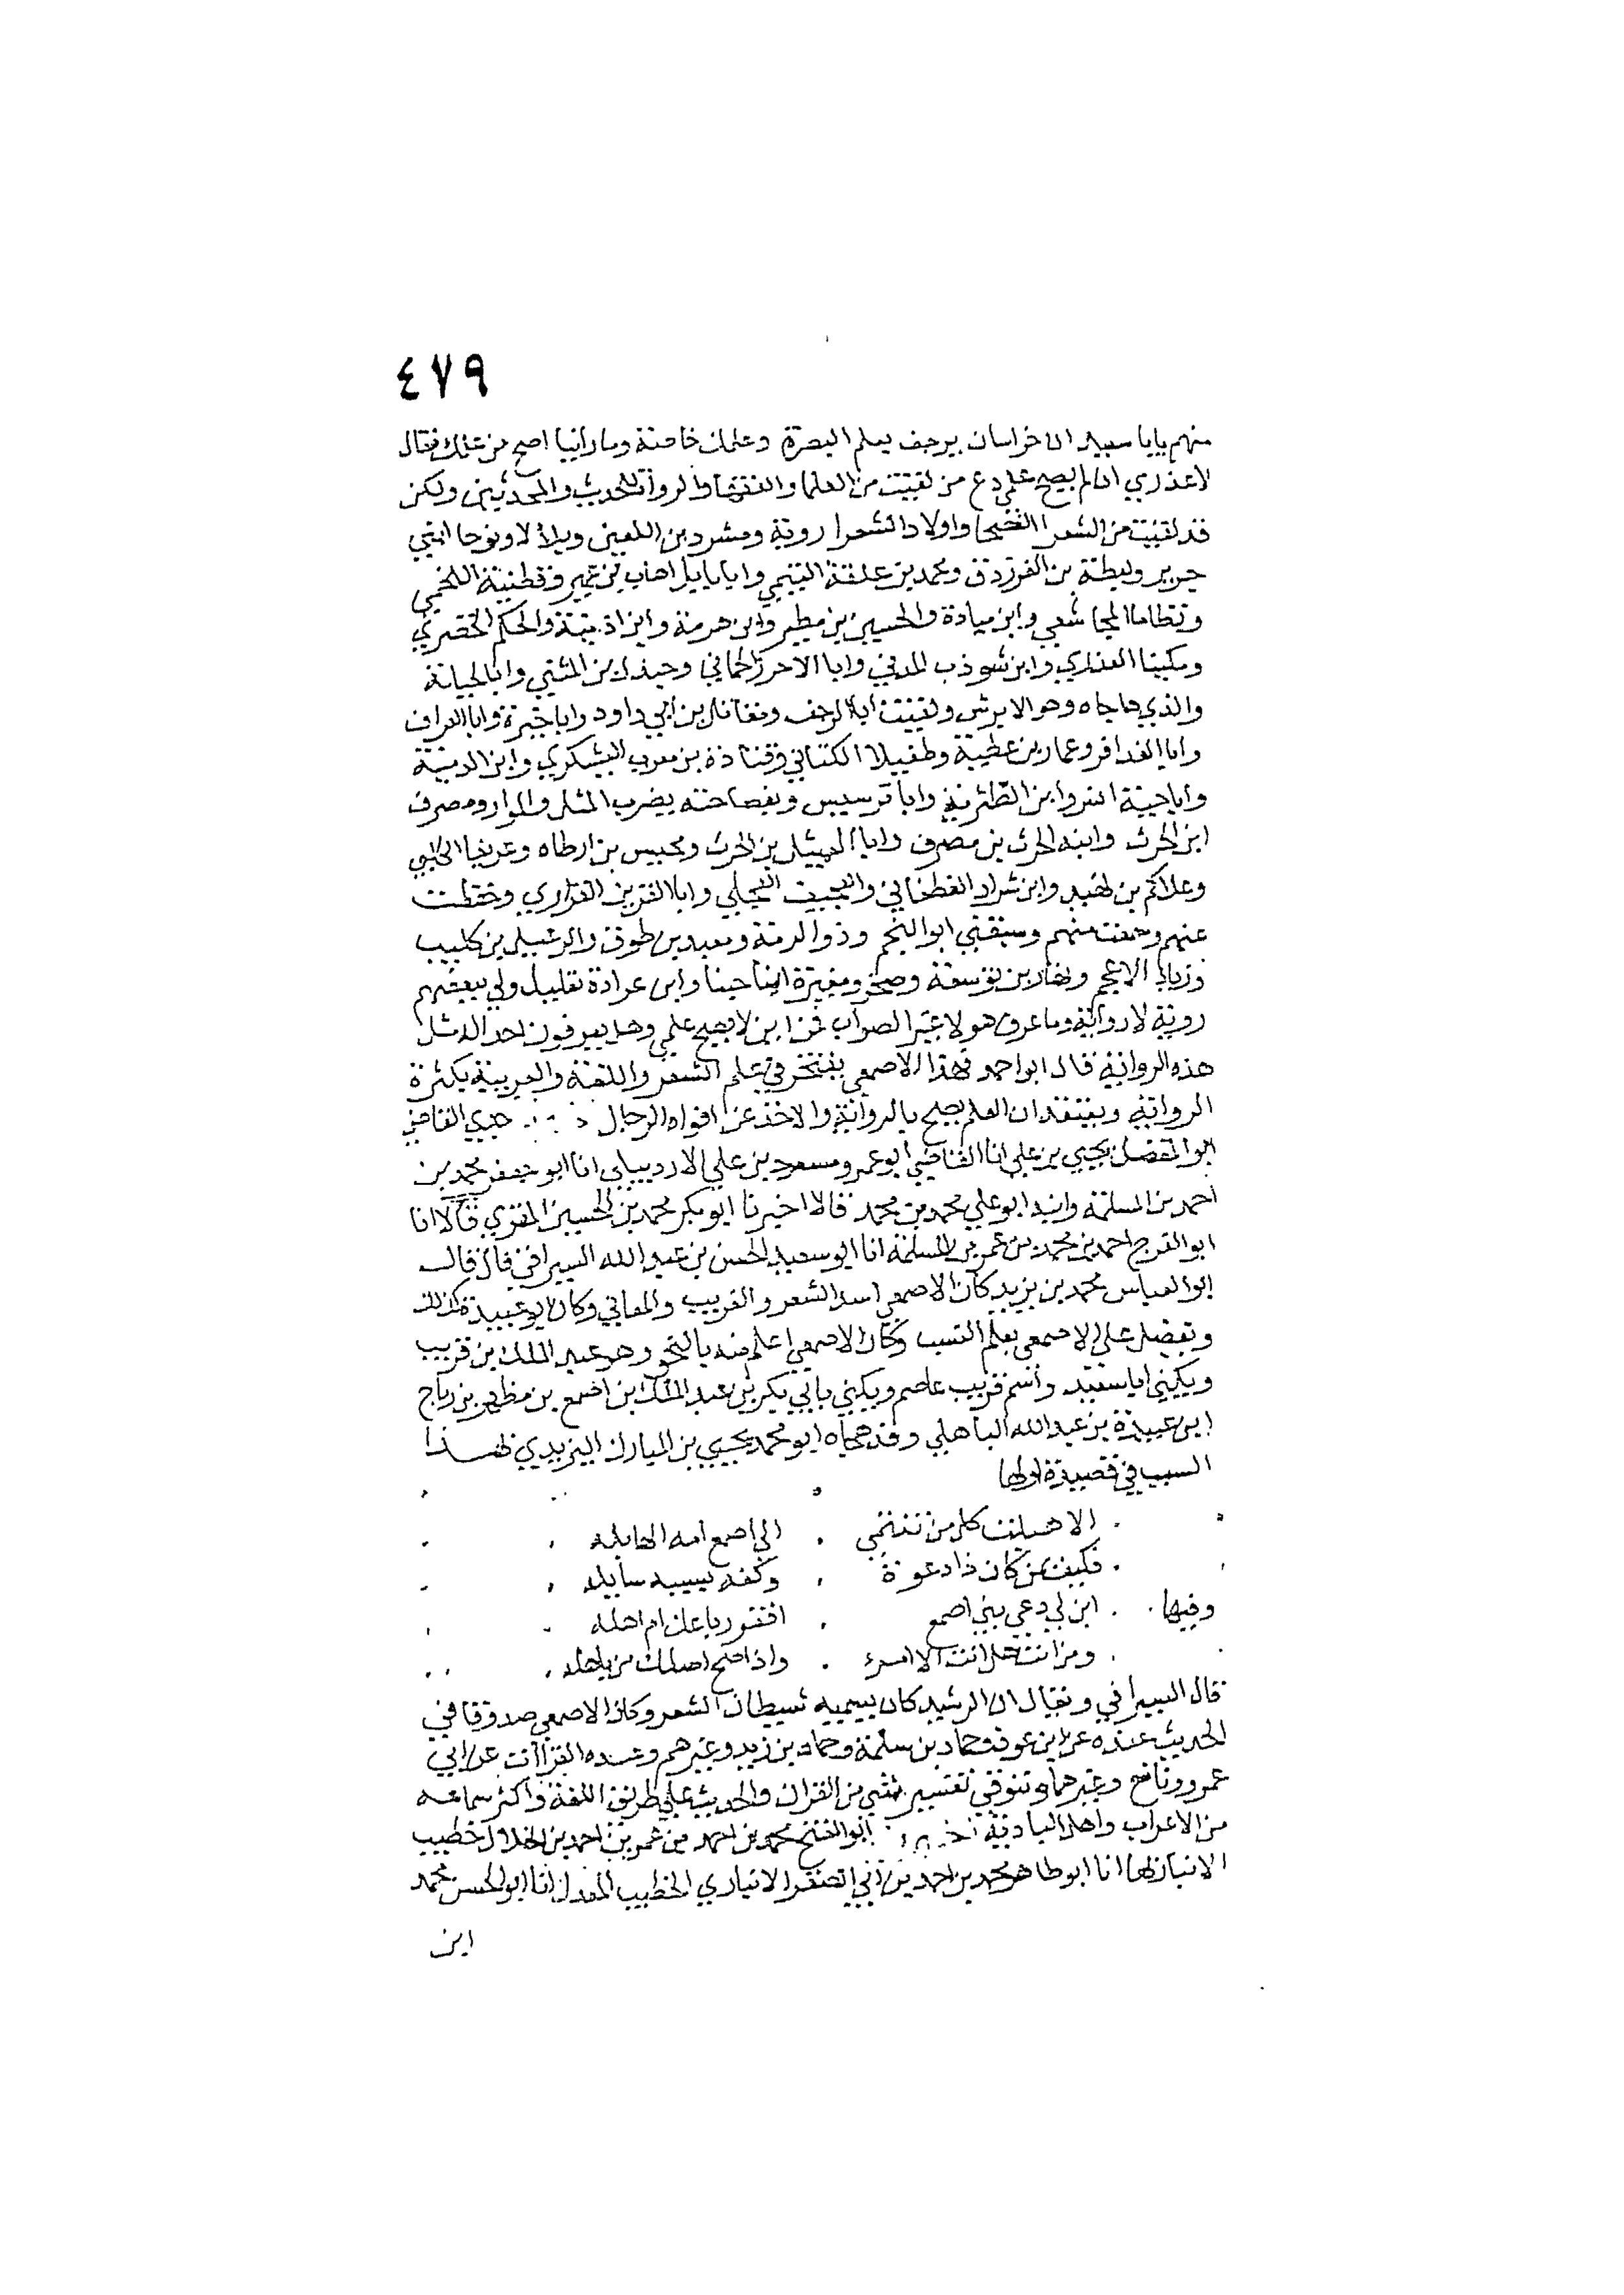 ٤٧٩
منهم يابا سعيد ان خراسان يرجف بعلم البصرة وعلمك خاصة وما راينا اصح من علمك فقال
لا عذر لي ان لم يصح علمي دع من لقيت من العلما والفقها والرواة للحديث والمحدثين ولكن
قد لقيت من الشعرا الفصحا واولاد الشعرا روبة ومشرد بن اللعين وبلالا ونوحا ابني
جرير ولبطة بن الفرزدق ومحمد بن علقة التيمي وابا اهاب بن عمير
المجاشعي وابن ميادة والحسين بن مطير وابن هرمة وابن اذينة والحكم الخضري
ومسكينا العذري وابن شوذب المدني وابا الاحرز الحماني وجندل بن المثني وابا
والذي هاجاه وهو الابرش ولقيت ابا الزحف ومقاتل بن ابي داود وابا خيرة وابا العراف
وابا الغدافر وعمار بن عطية وطفيلا الكناني وقتادة بن معرب اليشكري وابن الدمينة
وابا حية وابن الطثرية وابا وبفصاحته يضرب المثل ومصرف
ابن الحرث وابنه الحرث بن مصرف وابا بن الحرث ومحبيس بن ارطاه
وابن شراد الغطفاني والعجيف العجلي وابا القرين الفزاري وحفظت
عنهم وسمعت منهم وسبقني ابو النجم وذو الرمة ومعبد بن طوق والرعبيل بن كليب
وزياد الاعجم ونهار بن توسعة وصخر ومغيرة ابنا حبنا وابن عرادة بقليل ولي ببعضهم
روية لا رواية وما عرف هولا غير الصواب فمن اين لا يصح علمي وهل يعرفون احدا له مثل
هذه الرواية قال ابو احمد فهذا الاصمعي يفتخر في علم الشعر واللغة والعربية بكثرة
الرواية ويعتقد ان العلم يصح بالرواية والاخذ عن افواه الرجال جدي القاضي
ابو المفضل يحيي بن علي انا القاضي ابو عمرو مسعود بن علي الاردبيلي انا ابو جعفر محمد بن
احمد بن المسلمة وابنه ابو علي محمد بن محمد قالا اخبرنا ابو بكر محمد بن الحسين المقري قالا انا
ابو الفرج احمد بن محمد بن عمر بن المسلمة انا ابو سعيد الحسن بن عبد الله السيرافي قال قال
ابو العباس محمد بن يزيد كان الاصمعي اسد الشعر والغريب والمعاني وكان ابو عبيدة كذلك
ويفضل علي الاصمعي بعلم النسب وكان الاصمعي اعلم منه بالنحو وهو عبد الملك بن قريب
ويكني ابا سعيد واسم قريب عاصم ويكني بابي بكر بن عبد الملك بن اصمع بن مظهر بن رباح
ابن عبيدة بن عبد الله الباهلي وقد هجاه ابو محمد يحيي بن المبارك اليزيدي لهذا
السبب في قصيدة اولها
الا هبلت كل من تنتمي الي اصمع امه الهابله
فكيف بمن كان ذا دعوة وكفه نسبه سايله
وفيها ابن لي دعي بني اصمع اقفر رباعك ام اهله
ومن انت هل انت الا امرء واذا صح اصلك من باهله
قال السيرافي ويقال ان الرشيد كان يسميه شيطان الشعر وكان الاصمعي صدوقا في
الحديث عنده عن ابن عون وحماد بن سلمة وحماد بن زيد وغيرهم وعنده القراات عن ابي
عمرو ونافع وغيرهما وتوقي تفسير شي من القران والحديث علي طريق اللغة واكثر سماعه
من الاعراب واهل البادية ابو الفتح محمد بن احمد بن عمر بن احمد بن الخلال خطيب
الانبار بها انا ابو طاهر محمد بن احمد بن ابي الصقر الانباري الخطيب المعدل انا ابو الحسن محمد
ابن